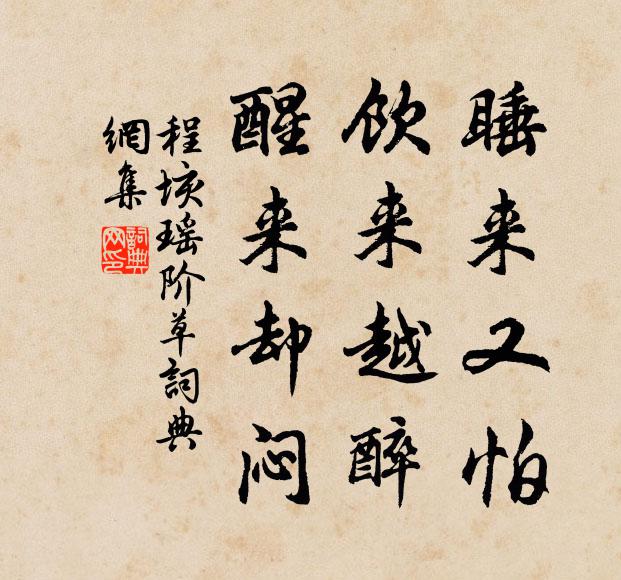 睡来又怕
饮来越醉
醒来却闷
程垓瑶阶草詞典
網集
詞典
网印